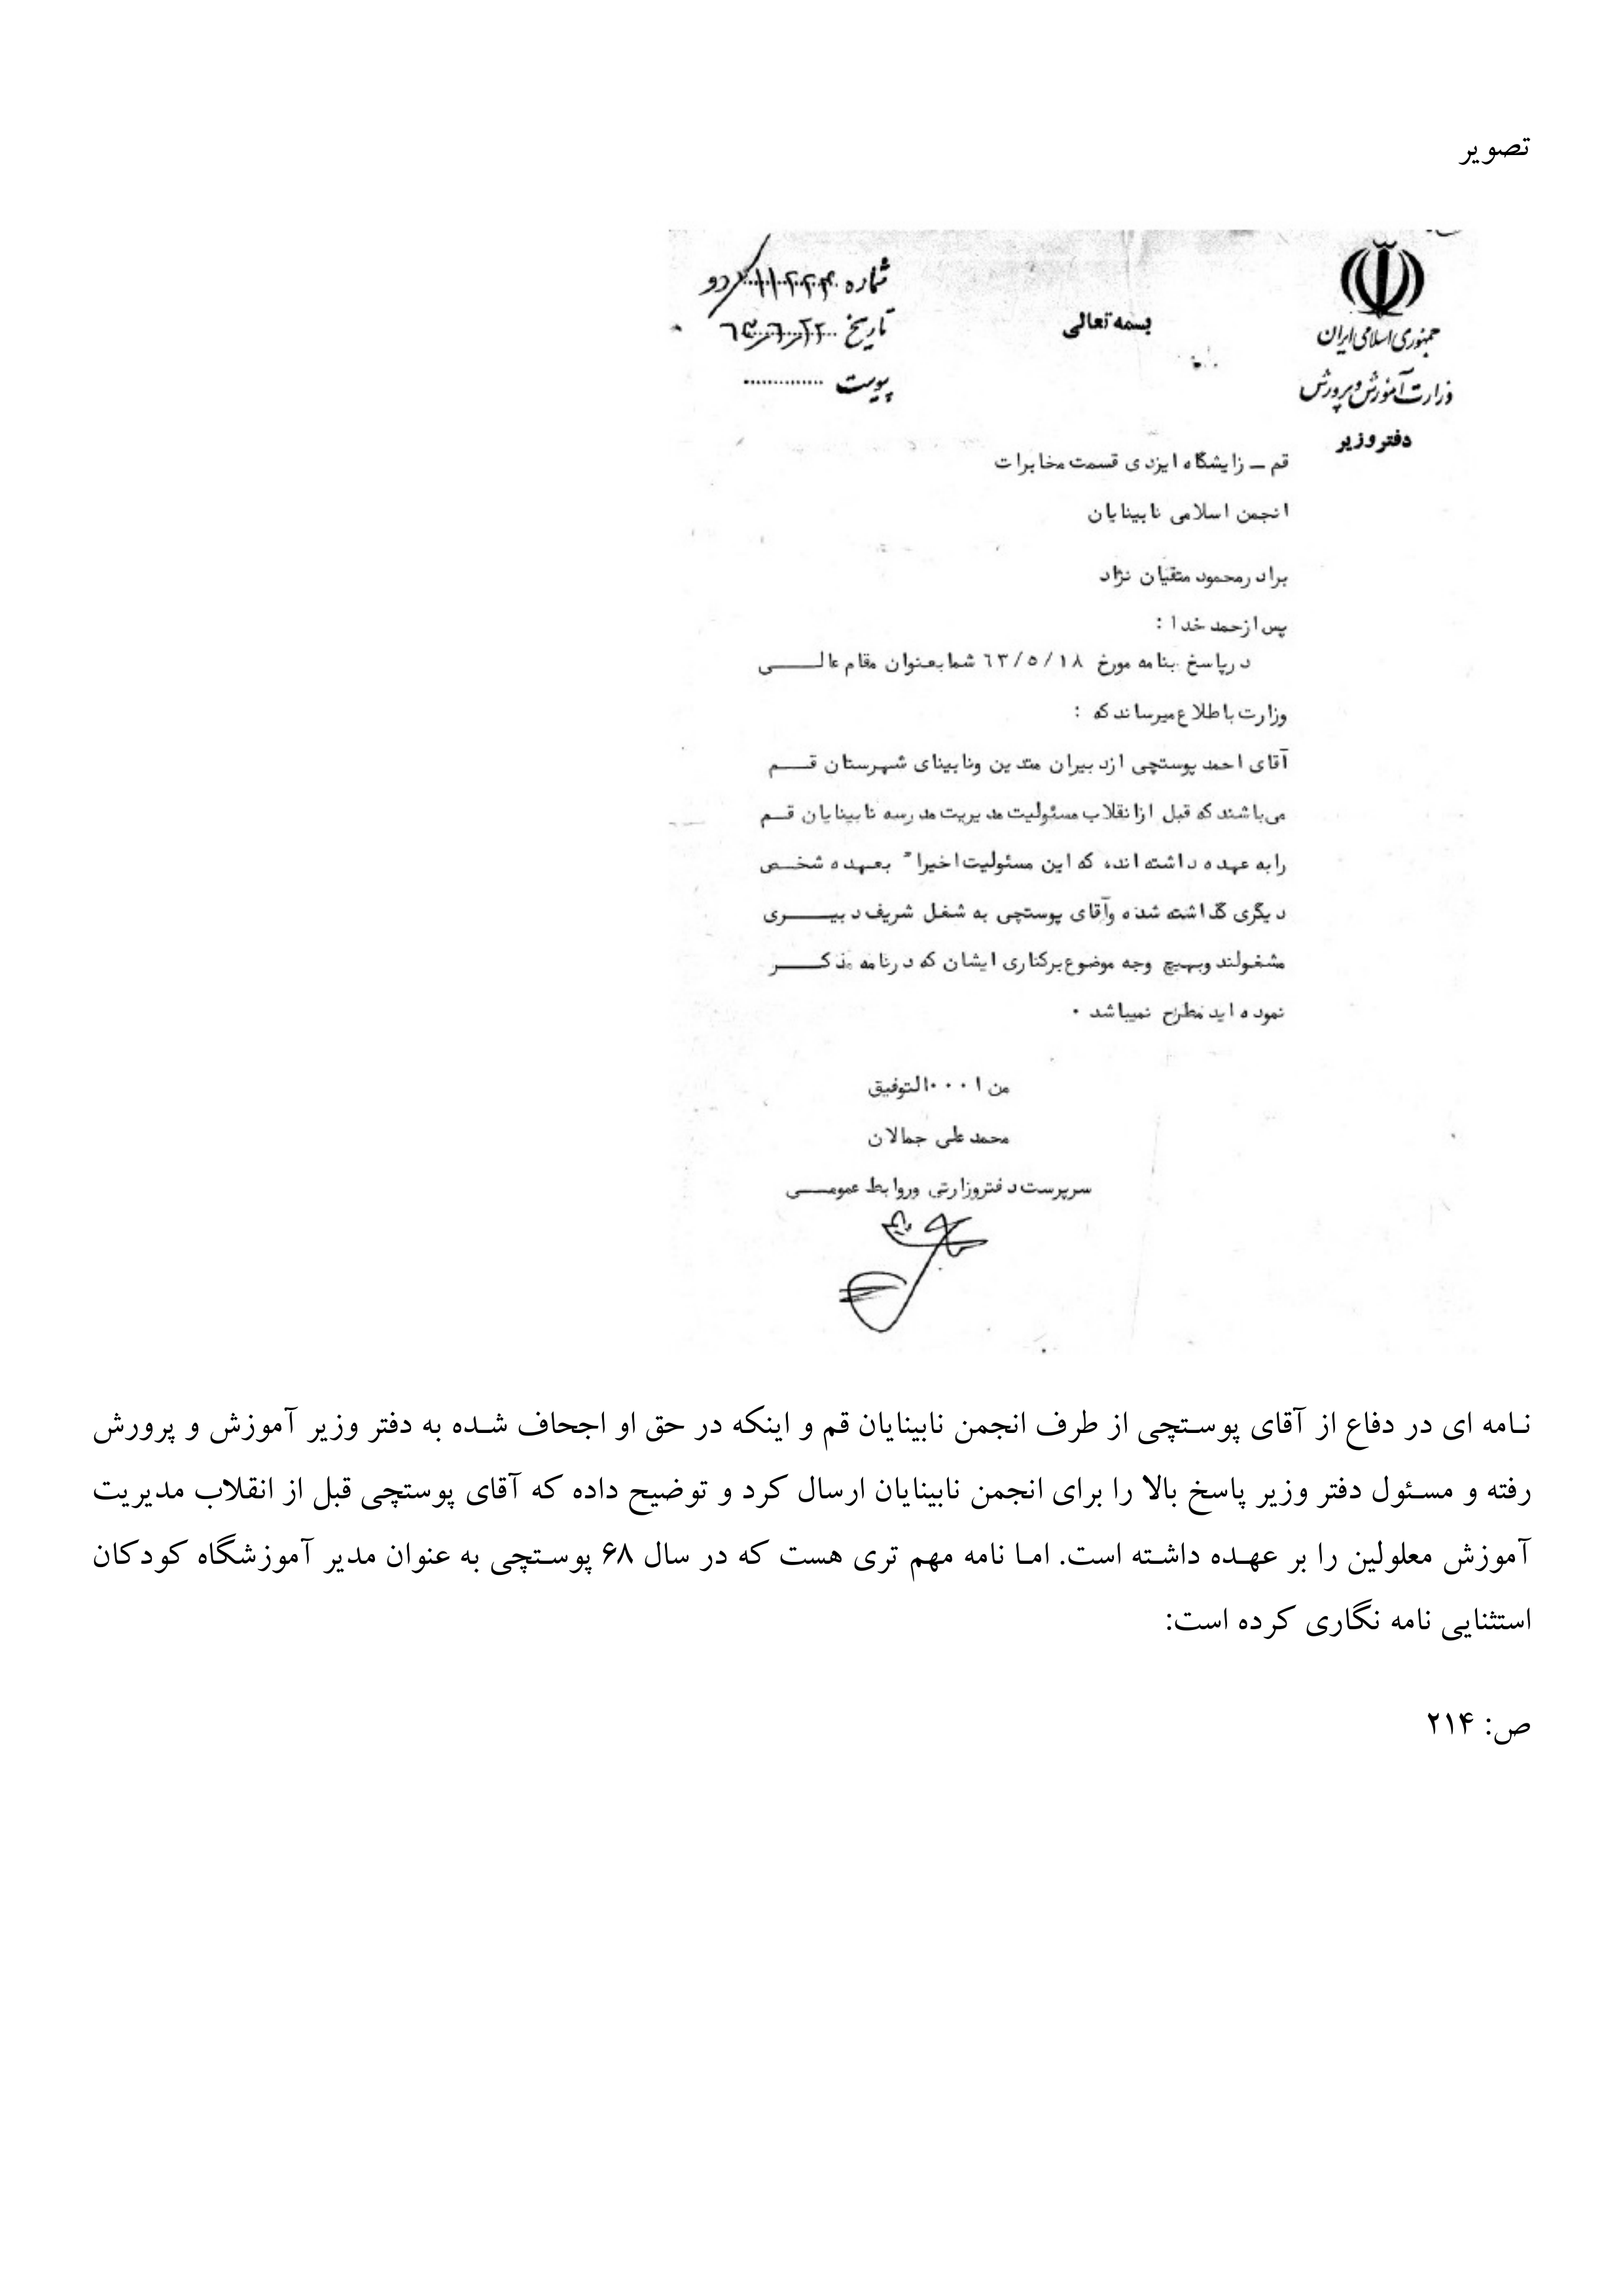 تصویر
جمهوری اسلامی ایران
وزارت آموزش و پرورش
دفتر وزیر
بسمه تعالی
شماره
تاریخ ٦٣/٦/٢٢
پیوست ..............
قم ـ زایشگاه ایزدی قسمت مخابرات
انجمن اسلامی نابینایان
برادر محمود متقیان نژاد
پس از حمد خدا :
در پاسخ بنامه مورخ ٦٣/٥/١٨ شما بعنوان مقام عالی
وزارت باطلاع میرساند که :
آقای احمد پوستچی از دبیران متدین و نابینای شهرستان قم
می‌باشند که قبل از انقلاب مسئولیت مدیریت مدرسه نابینایان قم
را به عهده داشته اند، که این مسئولیت اخیراً بعهده شخص
دیگری گذاشته شده و آقای پوستچی به شغل شریف دبیری
مشغولند و بهیچ وجه موضوع برکناری ایشان که در نامه ذکر
نموده اید مطرح نمیباشد ٠
من ا...التوفیق
محمد علی جمالان
سرپرست دفتر وزارتی و روابط عمومی
نامه ای در دفاع از آقای پوستچی از طرف انجمن نابینایان قم و اینکه در حق او اجحاف شده به دفتر وزیر آموزش و پرورش
رفته و مسئول دفتر وزیر پاسخ بالا را برای انجمن نابینایان ارسال کرد و توضیح داده که آقای پوستچی قبل از انقلاب مدیریت
آموزش معلولین را بر عهده داشته است. اما نامه مهم تری هست که در سال ۶۸ پوستچی به عنوان مدیر آموزشگاه کودکان
استثنایی نامه نگاری کرده است:
ص: ۲۱۴